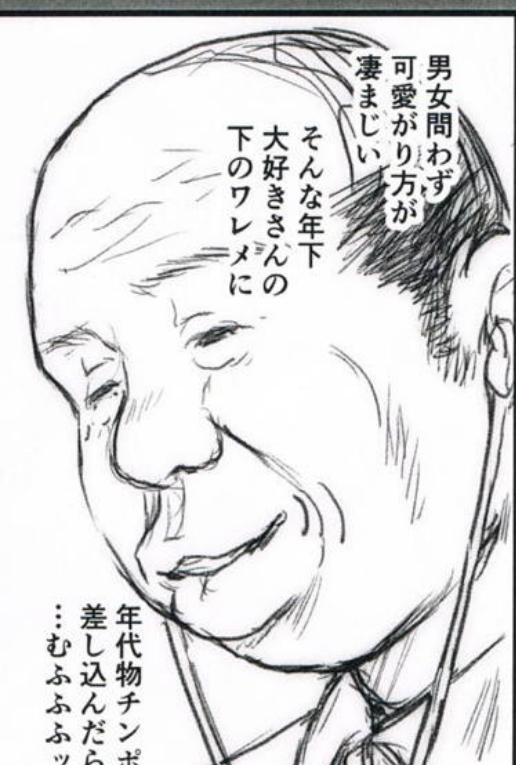 男女問わず
可愛がり方が
凄まじい
そんな年下
大好きさんの
下のワレメに
年代物チンポ
差し込んだら
…むふふふッ